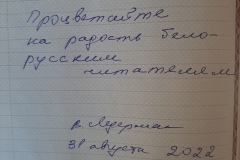 Процветайте
на радость бело-
русским
читателям
В. Ледерман
31 августа 2022